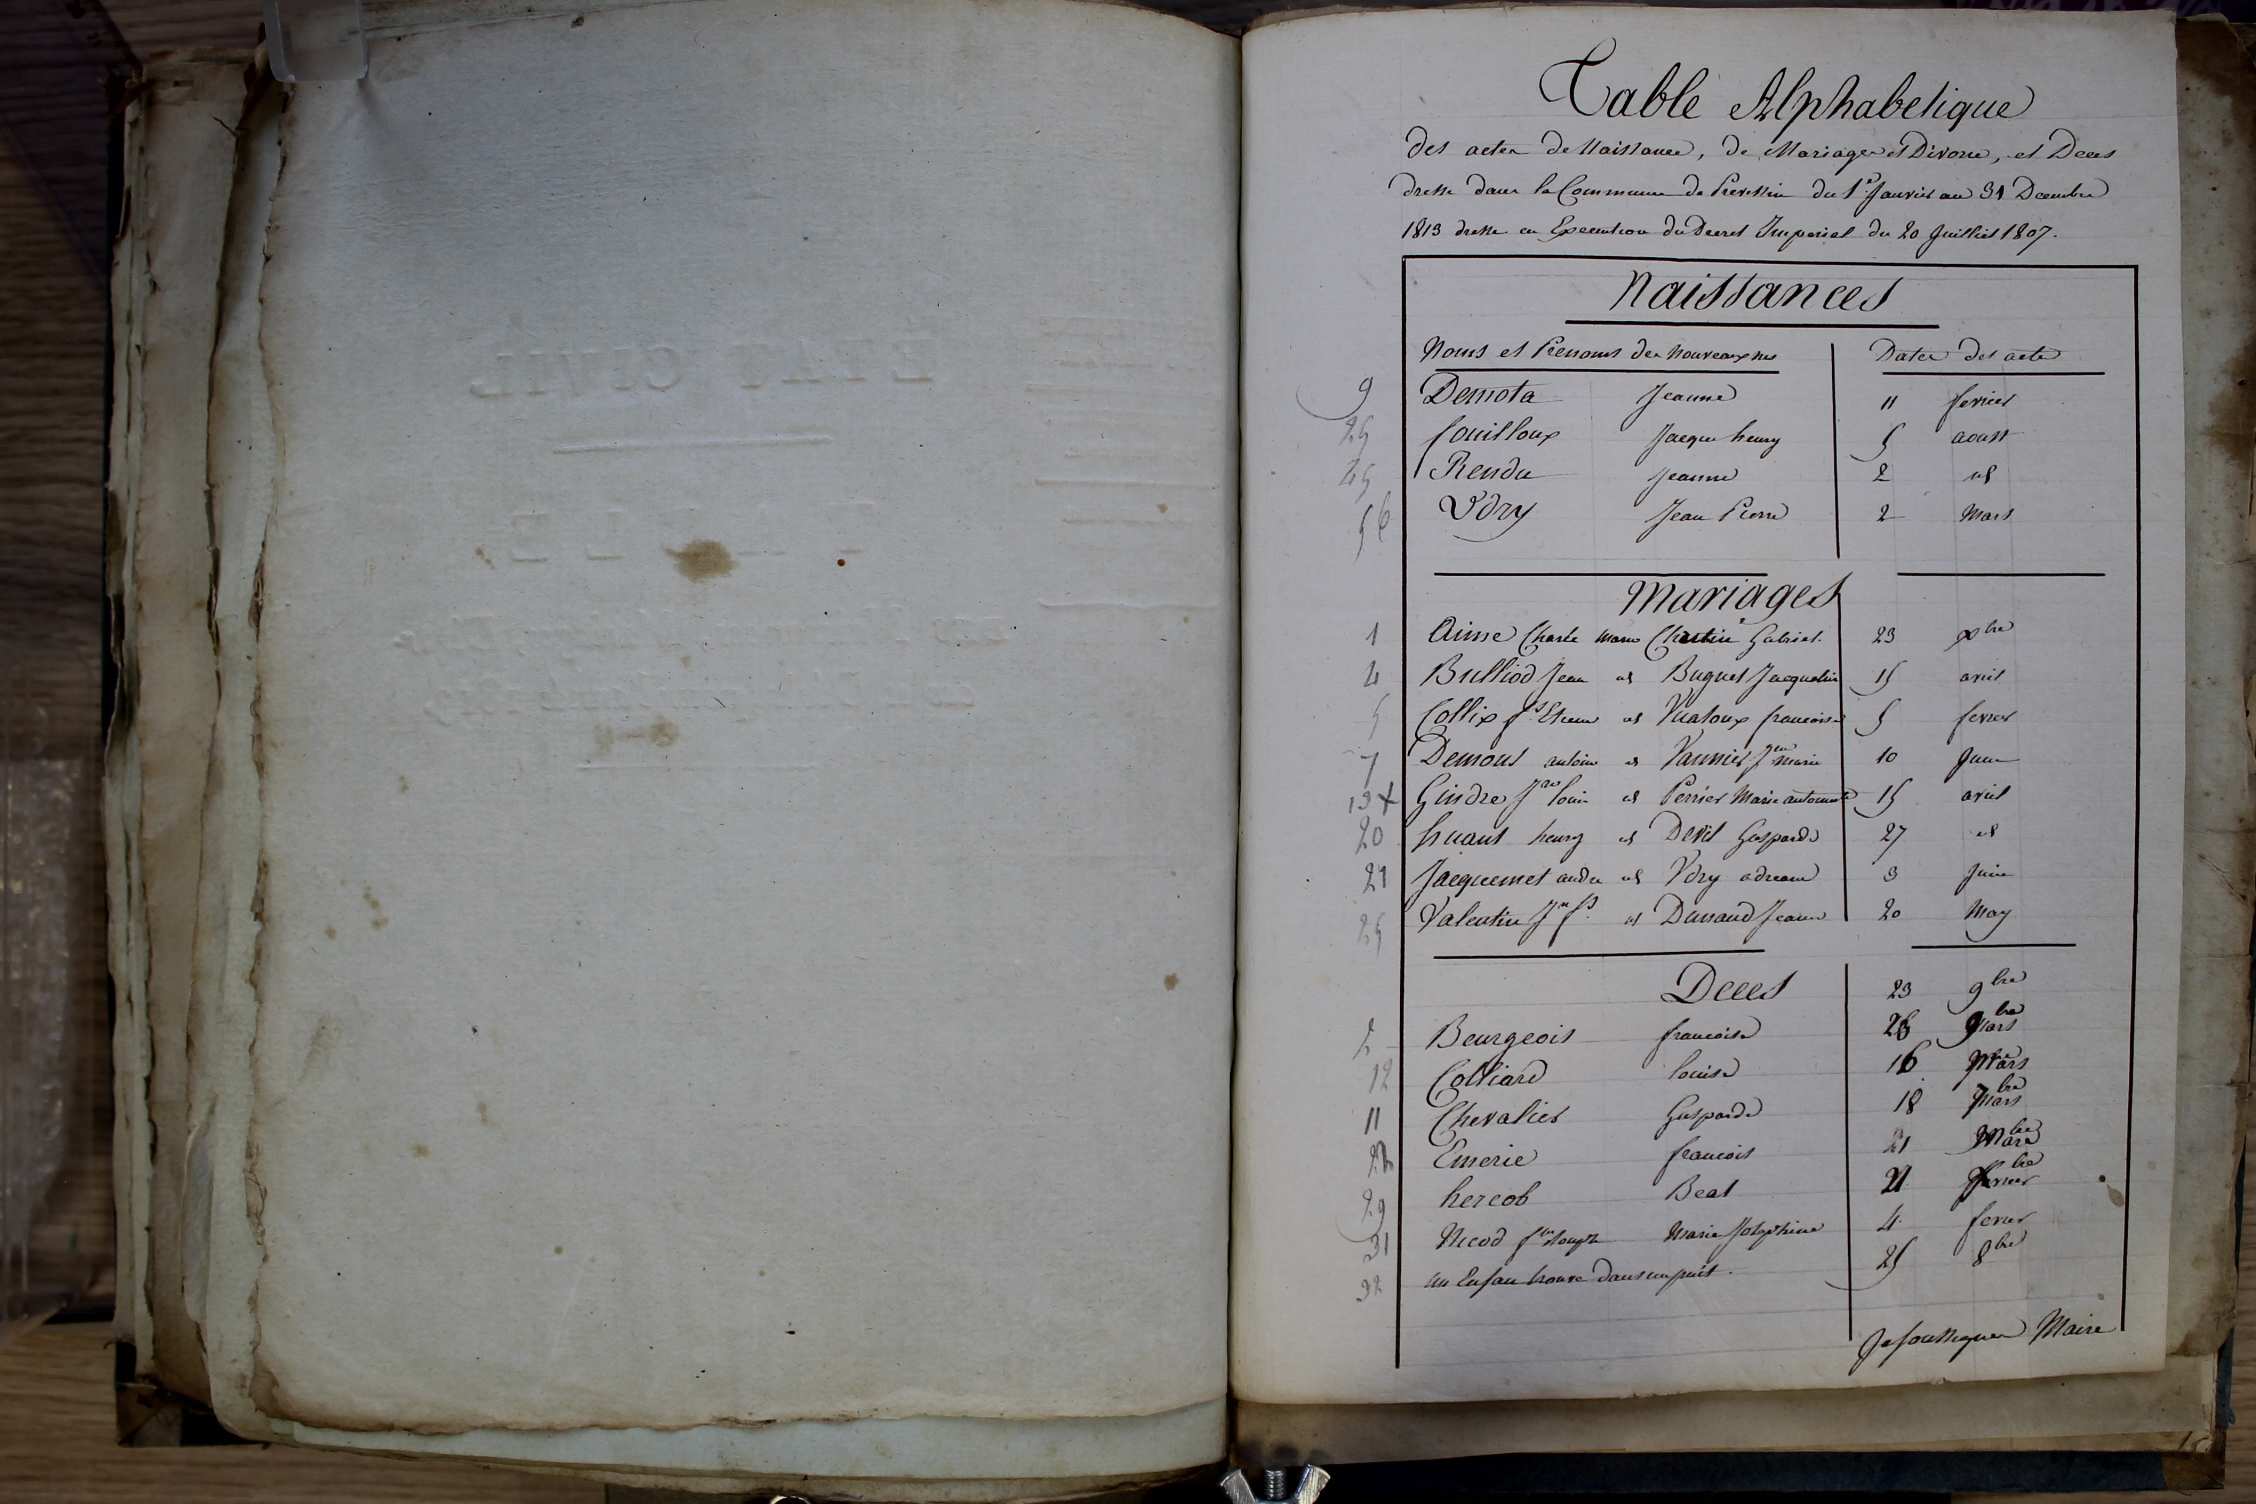 Table Alphabetique
des actes de Naissance, de Mariages et Divorce, et Deces
dresse dans la Commune de Prevessin du 1er Janvier au 31 Dcembre
1813 dresse en Execution du Decret Imperial du 20 Juilliet 1807.
Naissances
Noms et Prenoms des nouveaux nes Dates des acte
9 Demota Jeanne 11 fevrier
25 fouilloux Jacque henry 5 aoust
45 Rendu Jeanne 2 id
56 Vdry Jean Pierre 2 Mars
Mariages
1 Aime Charle Marie Gabriel. 23 xbre
4 Bulliod Jean et Buguet Jacqueline 15 avril
5 Collix fs Etienne et francoise 5 fevrier
7 Demons antoine et Vaunier Jne marie 10 Juin
13 x Gindre louis et Perrier Marie antoinette 15 avril
20 huant henry et Devil Gasparde 27 id
21 Jacquemet andre et Vdry 3 Juin
25 Valentin Jn fs. et Dunand Jeanne 20 May
Deces 23 9bre
2 Beurgeois francoise 26 Mars
12 Colliard louise 16 Mars
11 Chevalier Gasparde 18 Mars
22 Emerie francois 21 Mars
29 hercob Beat 21 fevrier
31 Nicod Marie Josephine 4 fevrier
32 un Enfan trouve dans un puit. 25 8bre
Jesoussigner Maire